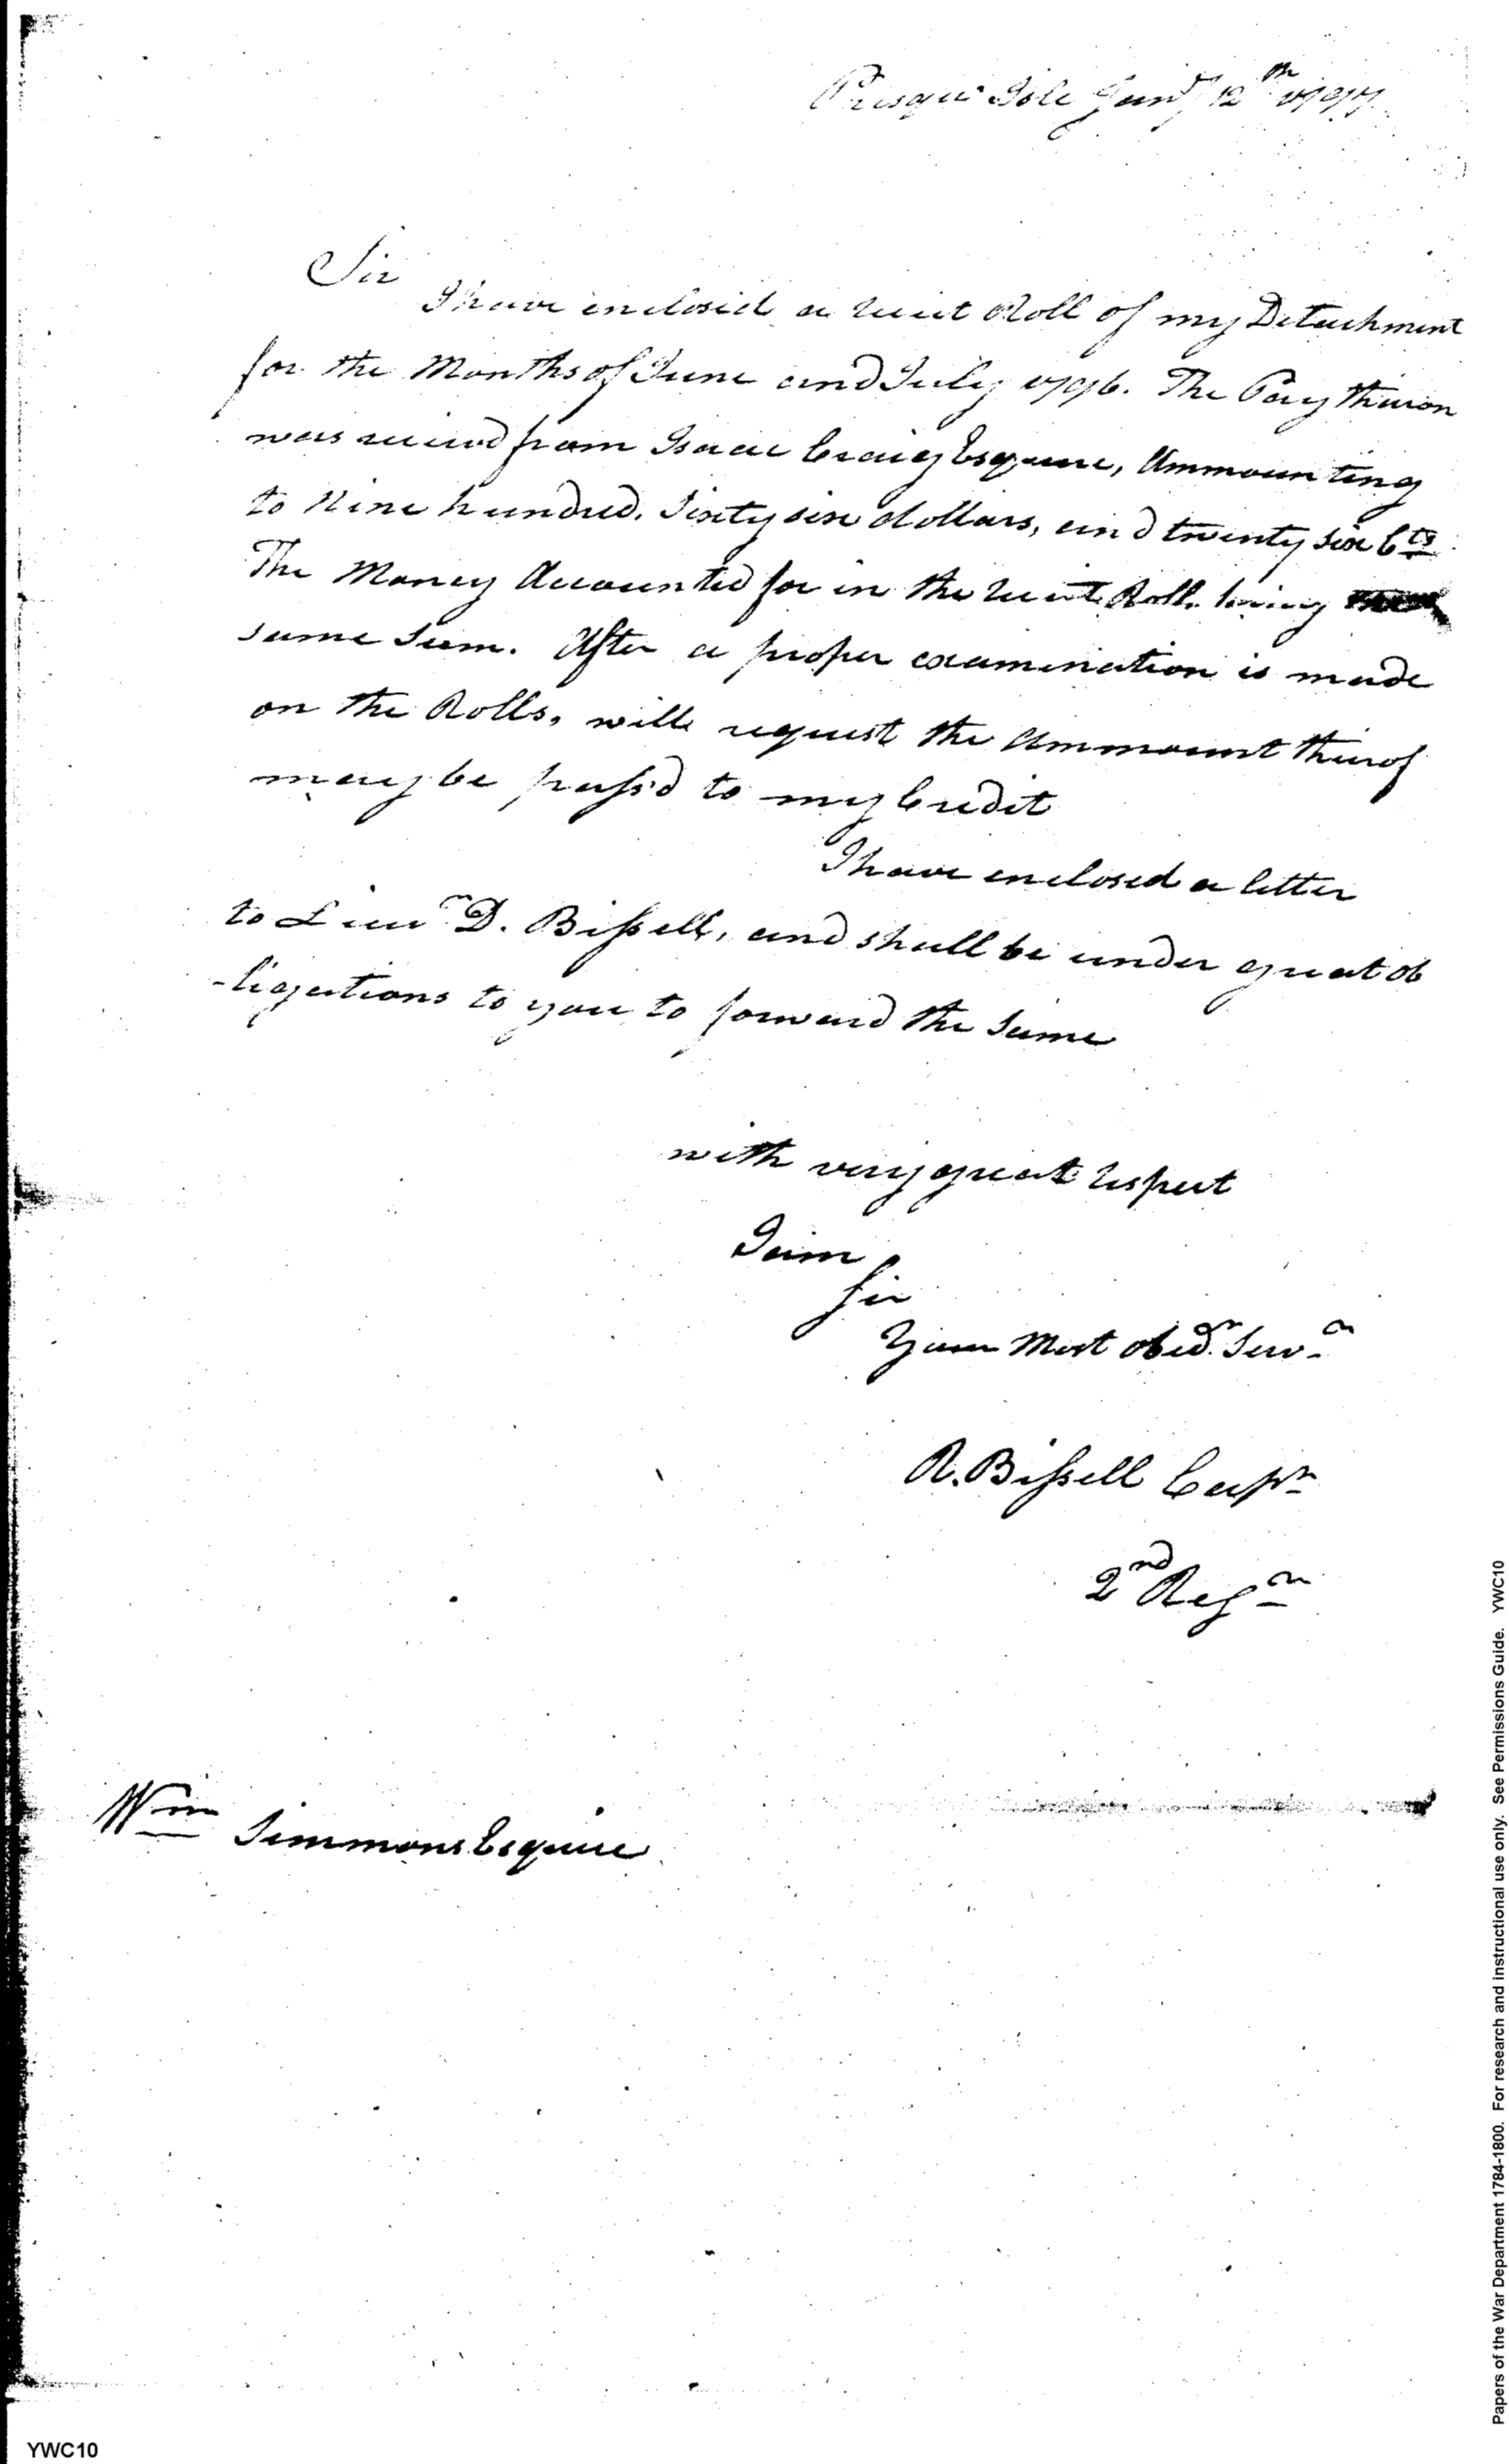 Presqu' Isle Jany 12th 1797
Sir
I have enclosed a receit Roll of my Detachment
for the Months of June and July 1796. The Pay theron
was receivd from Isaac Craig Esquire, Ammounting
to Nine hundred, Sixty six dollars, and twenty six Cts
The Money Accounted for in the receit Roll. being
same Sum. After a proper examination is made
on the Rolls, will request the Ammount therof
may be passd to my Credit
I have enclosed a letter
to Lieut D. Bissell, and shall be under great ob
-ligations to you to forward the Same
with very great respect
I am
Sir
Your Most obedt Servt
R. Bissell Captn
2nd Regt
Wm Simmons Esquire
Papers of the War Department 1784-1800. For research and instructional use only. See Permissions Guide. YWC10
YWC10